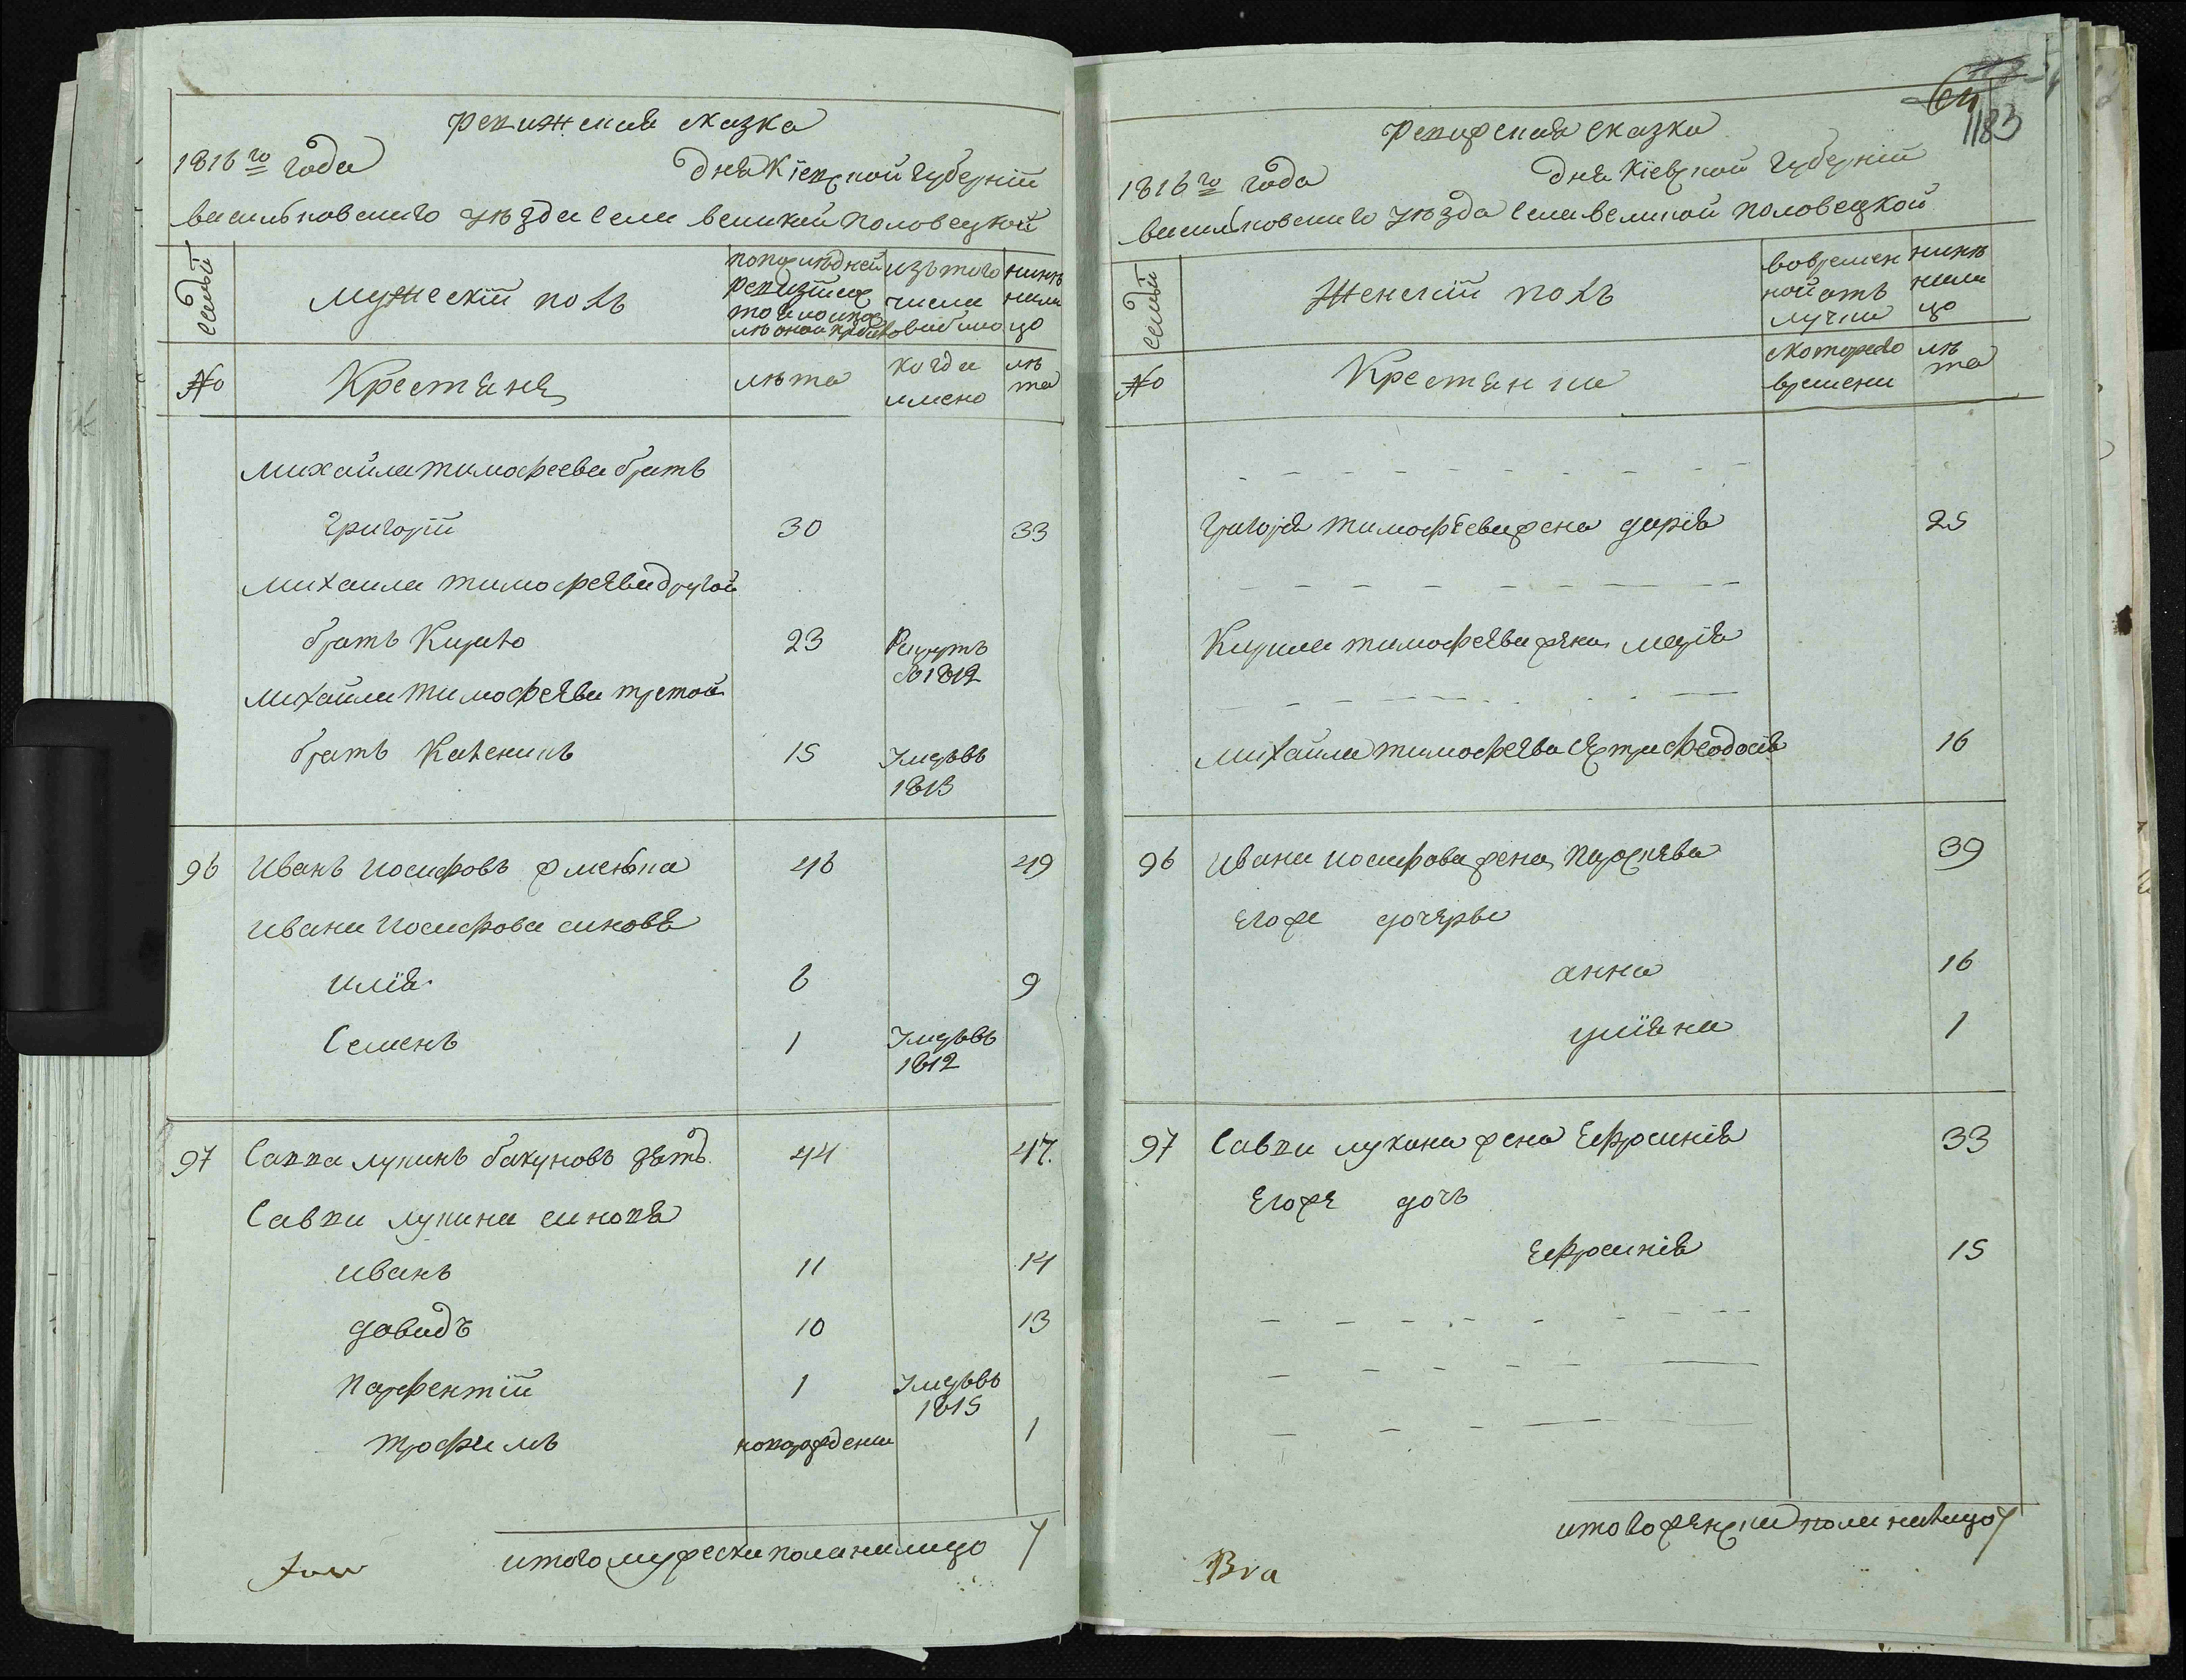 ревижская сказка
1816го года дня Кіевской губерніи
васильковского уѣзда села великой половецкой
семьи
мужескій полъ
по последней ревизіи
изъ того числа
нине нали цо
№
Крестяне
лѣта
когда имено
лѣ та
михайла тимофеева братъ
григорій 30 33
михаила тимофеева другой
братъ Кирило 23 Рекрутъ в 1812
михайла тимофеева третой
братъ Каленикъ 15 Умерлъ 1813
96 иванъ иосифовъ 46 49
ивана иосифова синове
илія 6 9
Семенъ 1 Умерлъ 1812
97 Савва лукинъ бакуновъ зять 44 47.
Савви лукина синове
иванъ 11 14
давидъ 10 13
парфентій 1 Умерлъ 1815
трофимъ новорожденъ 1
итого мужеска пола налицо 7
64
1183
ревижская сказка
1816го года дня Кіевской губерніи
васильковского уѣзда села великой половецкой
семьи
женскій полъ
во времен ной отъ лучки
нине нали цо
№
Крестянки
скоторого времени
лѣ та
григорія тимофеева жена дарія 25
Кирила тимофеева жена марія
михайла тимофеева сестра феодосія 16
96 ивана иосифова жена параскева 39
егоже дочери
анна 16
уліяна 1
97 Савви лукина жена Ефросинія 33
Егоже дочь
Ефросинія 15
итого женска пола налицо 7